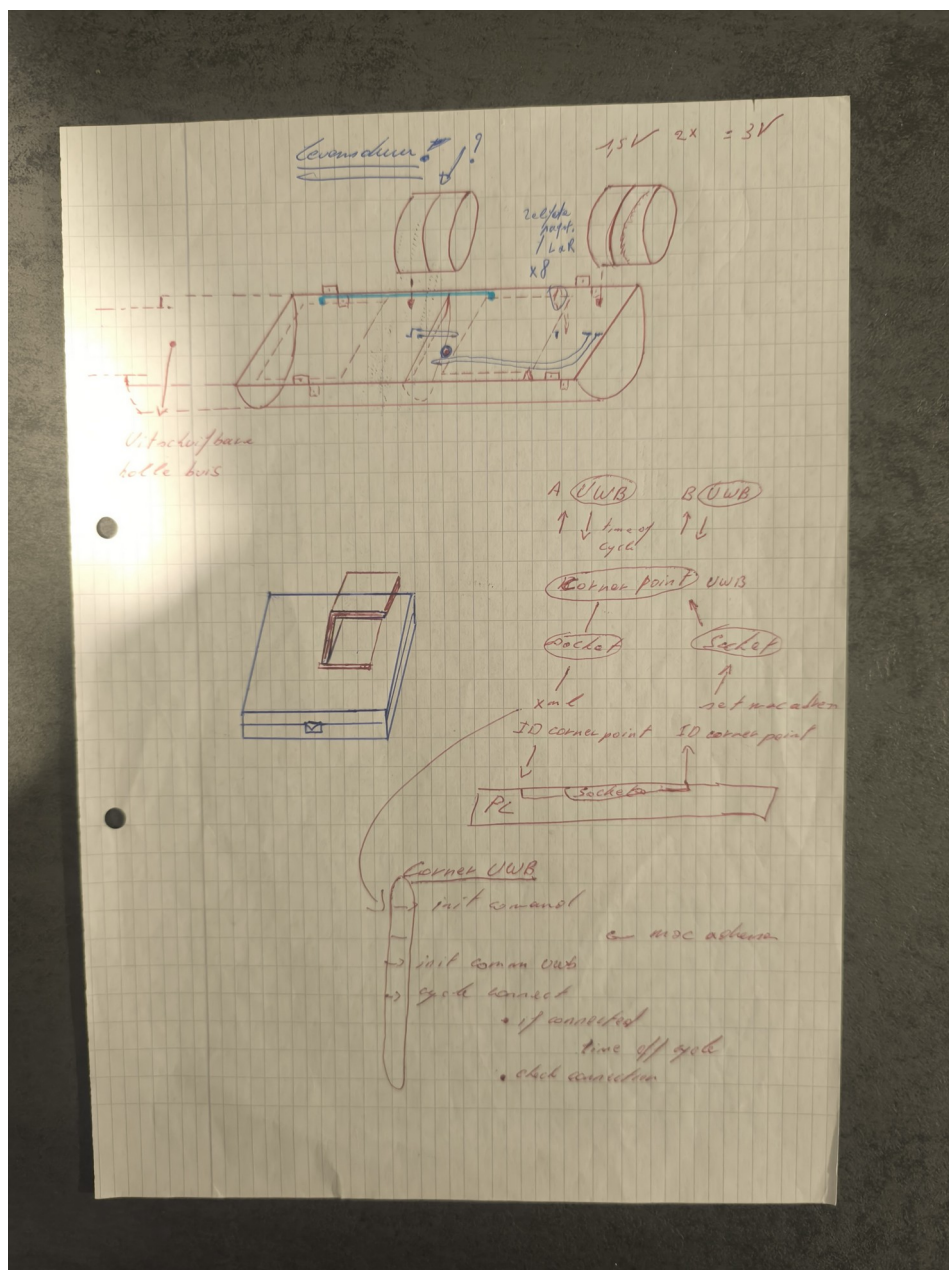 1,5V 2x = 3V
Levensduur !?
x8
Uitschuifbare
holle buis
A UWB B UWB
time of
cycle
Corner point UWB
Socket Socket
xml set mac adres
ID corner point ID corner point
PC sockets
Corner UWB
→ init comand
← mac adressen
→ init comm uwb
→ cycle connect
• if connected
time off cycle
• check connection